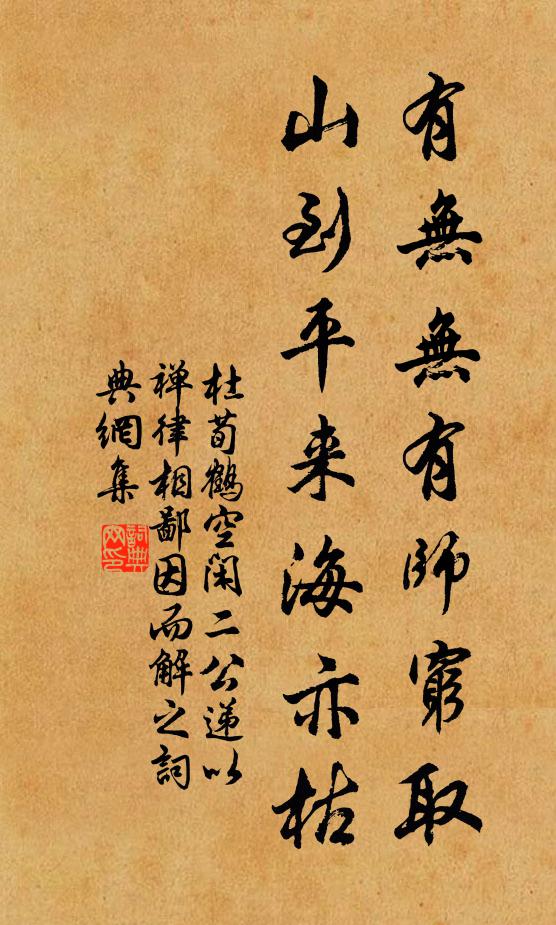 有無無有師窮取
山到平来海亦枯
杜荀鶴空閑二公遞以
禅律相鄙因而解之詞
典網集
詞典
网印